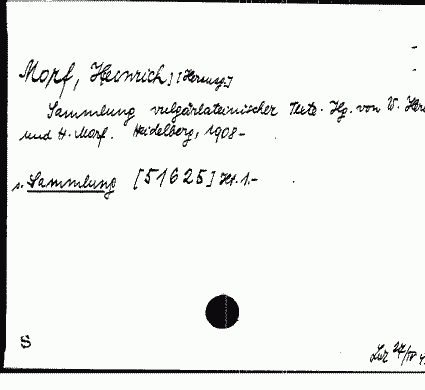 Morf, Heinrich, [Herausg.]
Sammlung vulgärlateinischer Texte. Hg. von W. Her
und H. Morf. Heidelberg, 1908-
s. Sammlung [51625] H. 1.-
S